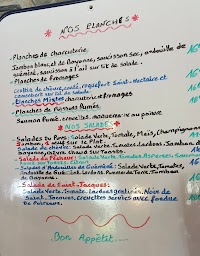 NOS PLANCHES
Planches de charcuterie,
Jambon blanc et de Bayonne, saucisson sec, andouille de
guéméné, saucisson à l'ail sur lit de salade.
Planches de fromages
crottin de chèvre, comté, roquefort Saint-Nectaire et
Camembert sur lit de salade
Planches Mixtes, charcuterie fromages
Planches de Poissons Fumés.
Saumon Fumé, crevettes, maquereaux au poivre
NOS SALADES
Salades du Parc: Salade Verte, Tomate, Maïs, Champignons
Jambon, 1 œuf sur le Plat.
Salade de chèvre: Salade Verte, Tomates, Lardons,
Bayonne, chèvre chaud sur Toasts.
Salade du Pêcheur: Salade Verte, Tomates, Asperges, Saumon
Fumé,
Salade d'Andouilles de Guéméné: Salade Verte, Tomates,
Andouille de Guéméné, Lardons, Pommes de Terre, Jambon
de Bayonne.
Salade de Saint-Jacques:
Salade Verte, Tomate, Lardons, Noix de
Saint-Jacques, crevettes servies avec fondue
de Poireaux.
Bon Appétit....